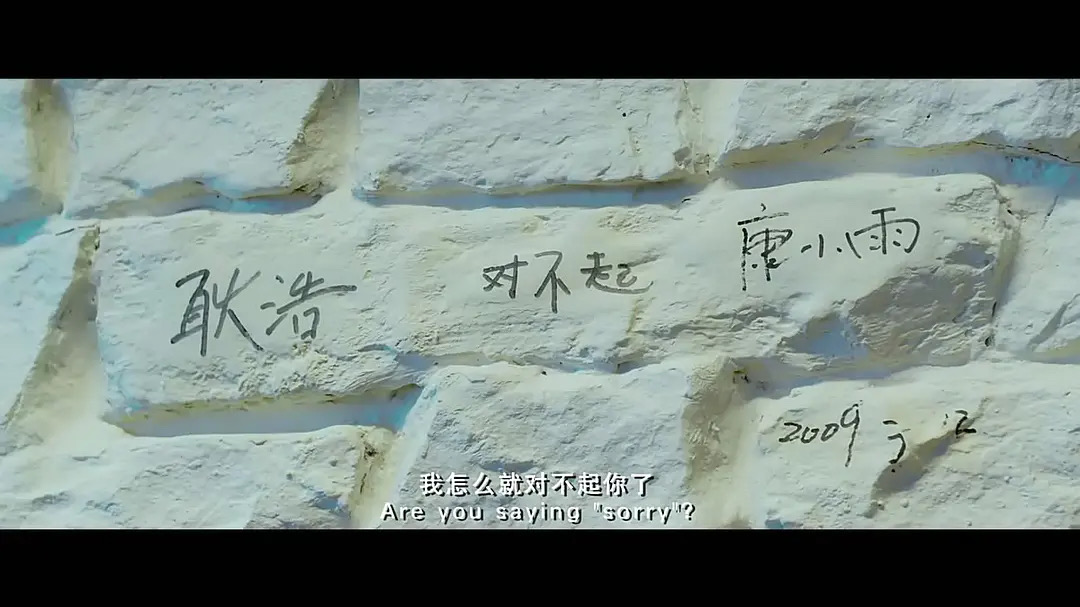 耿浩 对不起 康小雨
2009
我怎么就对不起你了
Are you saying "sorry"?